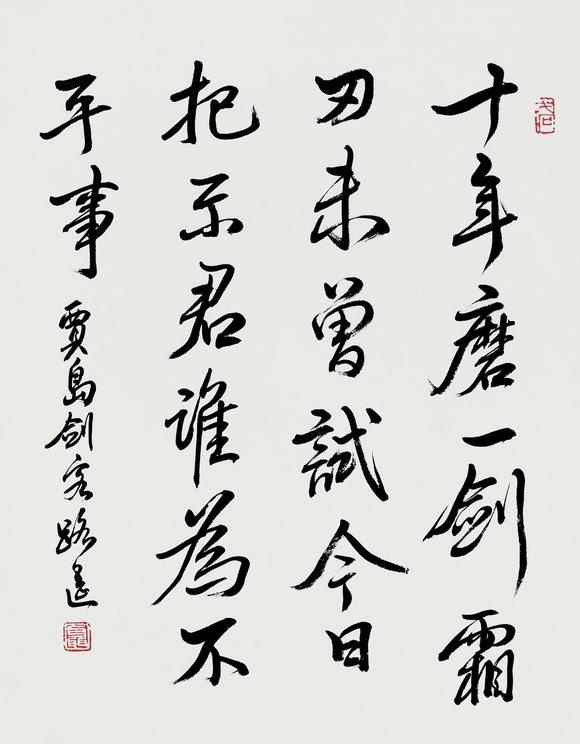 十年磨一剑霜
刃未曾試今日
把示君誰為不
平事
賈島剑客路遙